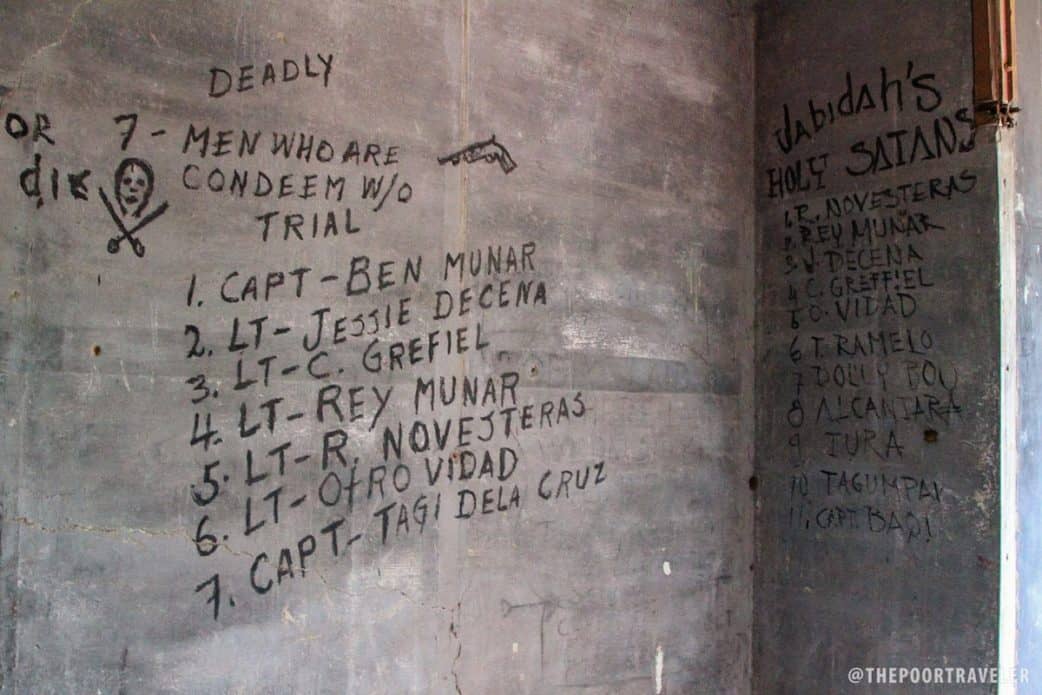 DEADLY
OR 7 - MEN WHO ARE
die CONDEEM W/O
TRIAL
1. CAPT - BEN MUNAR
2. LT - JESSIE DECENA
3. LT - C. GREFIEL
4. LT - REY MUNAR
5. LT - R. NOVESTERAS
6. LT - OTRO VIDAD
7. CAPT - TAGI DELA CRUZ
Jabidah's
HOLY SATANS
1. R. NOVESTERAS
2. REY MUNAR
3 J. DECENA
4 C. GREFFIEL
5 O. VIDAD
6 T. RAMELO
7 DOLLY
8 ALCANTARA
9 TURA
10 TAGUMPAY
11. CAPT. BAQI
@THEPOORTRAVELER